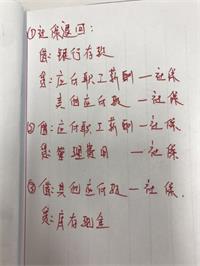 ①社保退回:
借:银行存款
贷:应付职工薪酬—社保
其他应付款—社保
②借:应付职工薪酬—社保
贷:管理费用—社保
③借:其他应付款—社保.
贷:库存现金